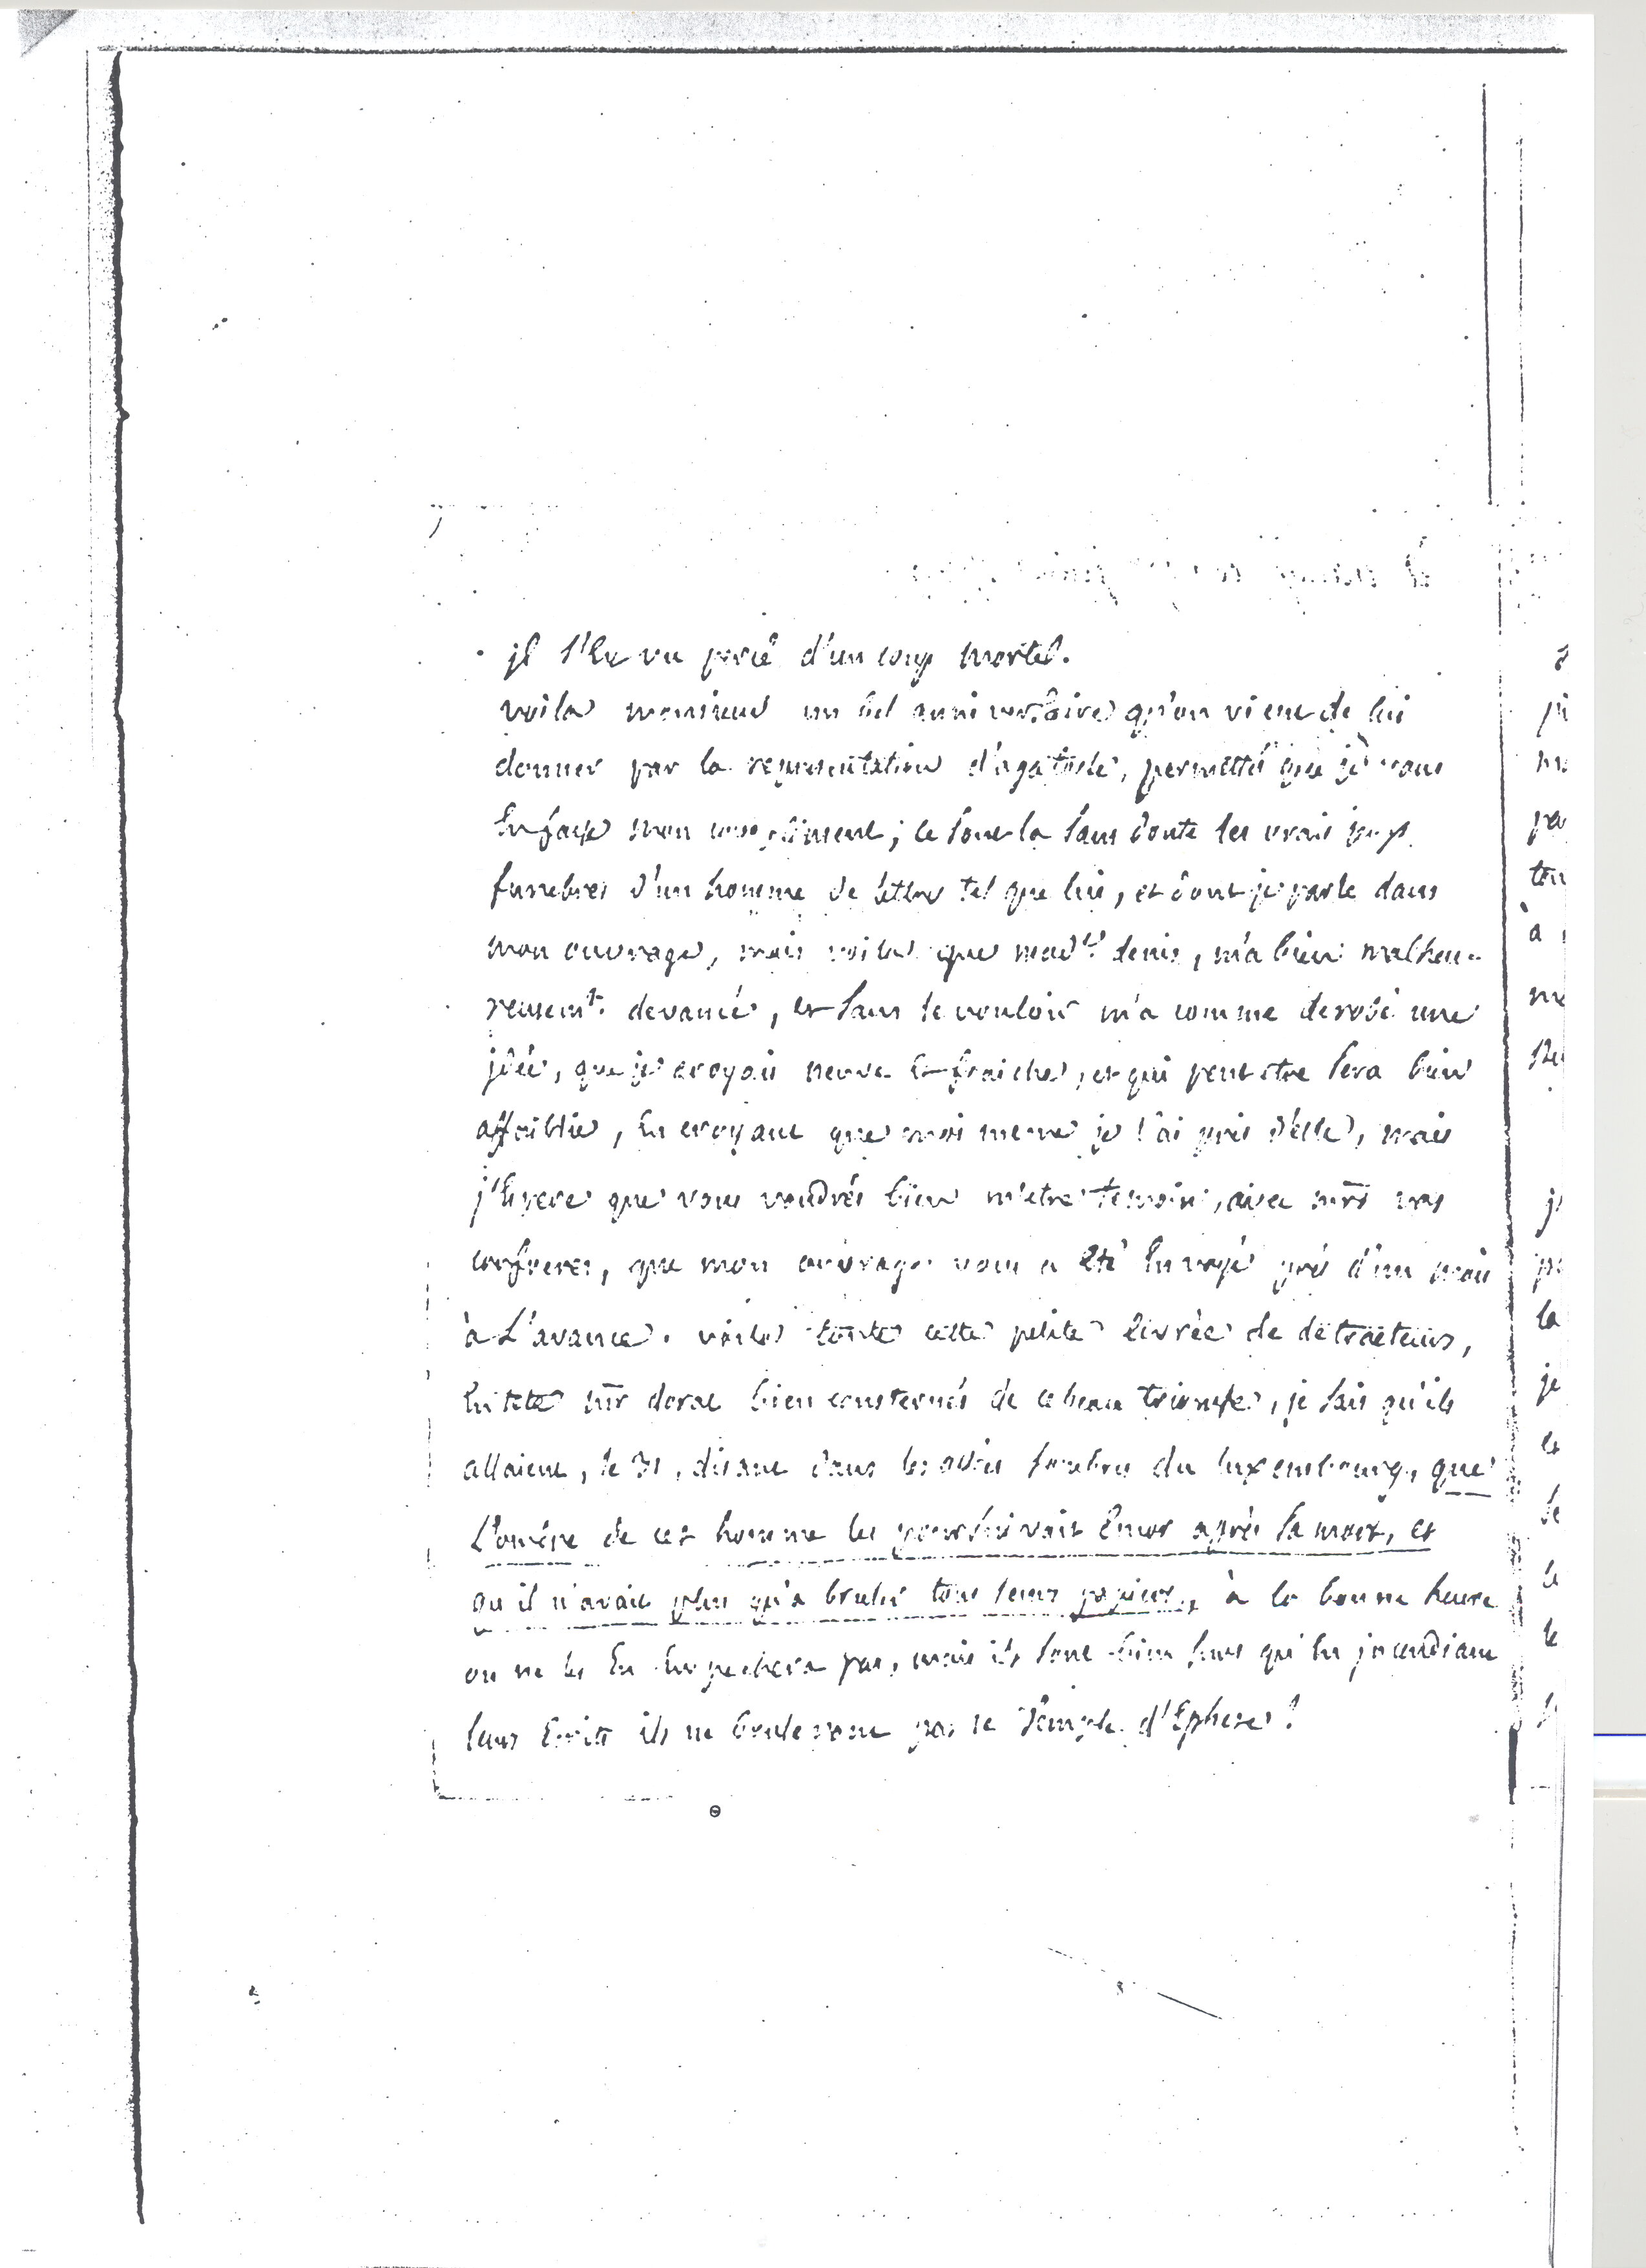 jl s'est vu percé d'un coup mortel.
voila monsieur un bel anniversaire qu'on vient de lui
donner par la representation d'agatocle, permettés que je vous
en fasse mon compliment; ce sont la sans doute les vrais jeux
funebres d'un homme de lettre tel que lui, et dont je parle dans
mon ouvrage, mais voila que mad.e denis, m'a bien malheu-
reusemt. devancé, et sans le vouloir m'a comme derobé une
jdée, que je croyois neuve et fraiche, et qui peut etre sera bien
affoiblie, en croyant que moi meme je l'ai pris d'elle, mais
j'espere que vous voudrés bien m'etre temoin, avec mrs vos
confreres, que mon ouvrage vous a été envoyé près d'un mois
à L'avance. voila toute cette petite livrée de détracteurs,
en tete mr dorat bien consternés de ce beau triomfe, je sais qu'ils
alloient, le 31, disant dans les allées sombres du luxembourg, que
L'ombre de cet homme les poursuivait encor après sa mort, et
qu'il n'avait plus qu'a bruler tous leurs papiers, à la bonne heure
on ne les en empechera pas, mais ils sont bien surs qu'en jncendiant
leurs Ecrits ils ne bruleront pas le Temple d'Ephese!